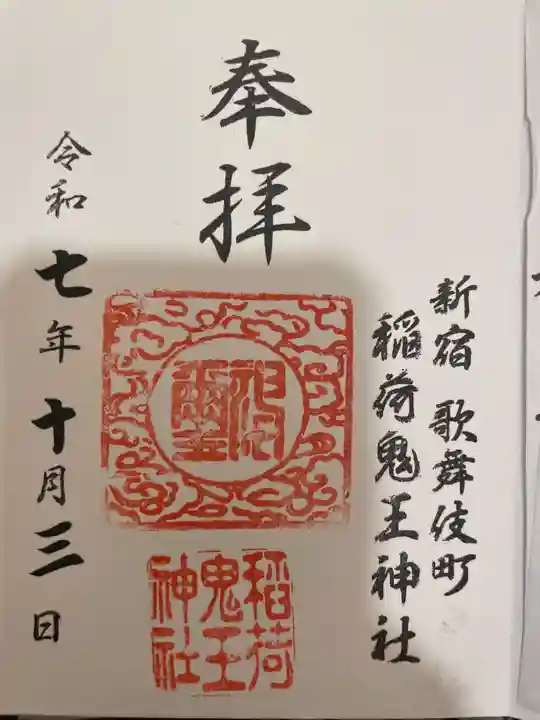 新宿 歌舞伎町
稲荷鬼王神社
奉拝
稲荷
鬼王
神社
令和七年十月三日